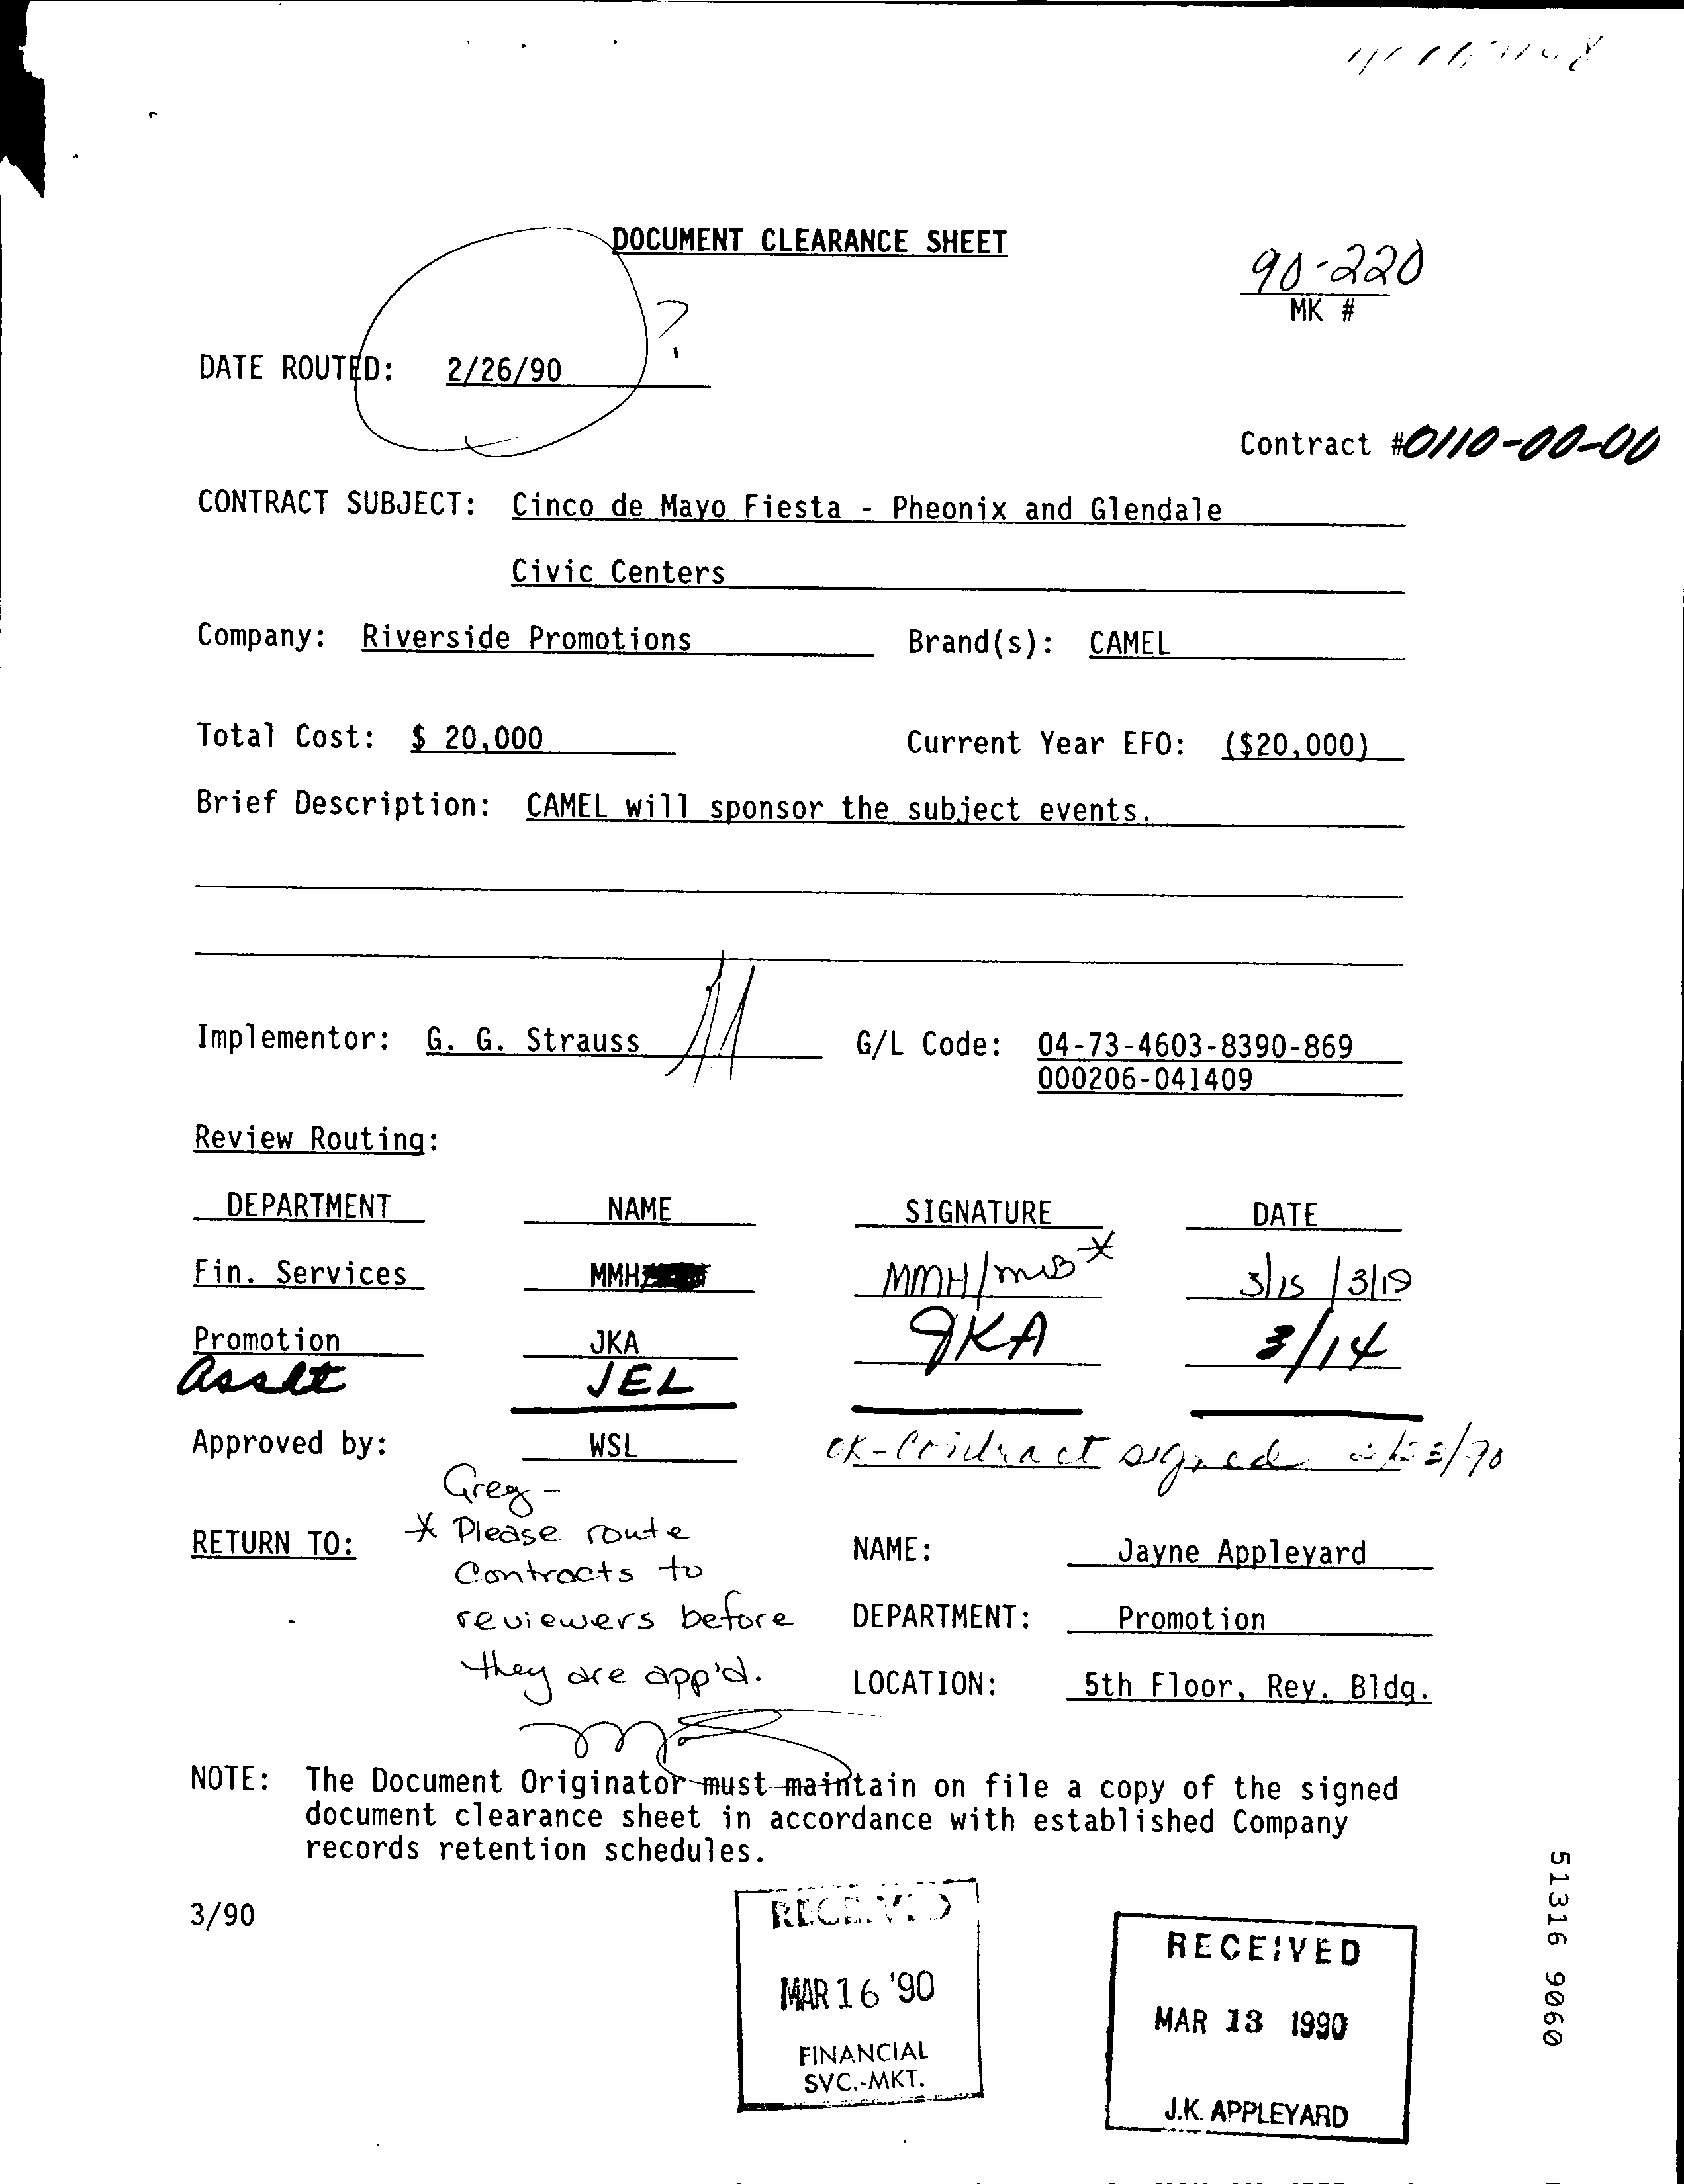 DOCUMENT CLEARANCE SHEET
90-220
MK #
?
DATE ROUTED: 2/26/90
Contract #0110-00-00
CONTRACT SUBJECT: Cinco de Mayo Fiesta - Pheonix and Glendale
Civic Centers
Company: Riverside Promotions Brand(s): CAMEL
Total Cost: $ 20,000 Current Year EFO: ($20,000)
Brief Description: CAMEL will sponsor the subject events.
Implementor: G. G. Strauss G/L Code: 04-73-4603-8390-869
000206-041409
Review Routing:
DEPARTMENT NAME SIGNATURE DATE
Fin. Services MMH MMH/MB* 3/15 / 3/19
Promotion JKA JKA 3/14
Asset JEL
Approved by: WSL OK-Contract signed
Greg -
RETURN TO: * Please route
Contracts to
reviewers before
they are app'd.
NAME: Jayne Appleyard
DEPARTMENT: Promotion
LOCATION: 5th Floor, Rey. Bldg.
NOTE: The Document Originator must maintain on file a copy of the signed
document clearance sheet in accordance with established Company
records retention schedules.
3/90
RECEIVED
MAR 16 '90
FINANCIAL
SVC.-MKT.
RECEIVED
MAR 13 1990
J.K. APPLEYARD
51316 9060